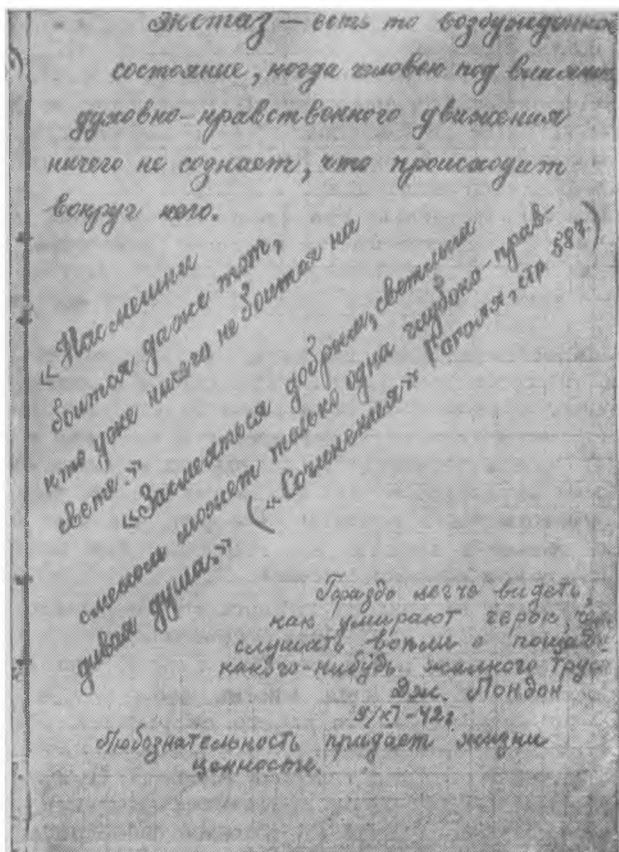 Экстаз — есть то возбужденное
состояние, когда человек под влиянием
духовно-нравственного движения
ничего не сознает, что происходит
вокруг него.
«Насмешки
боится даже тот,
кто уже ничего не боится на
свете.»
«Засмеяться добрым, светлым
смехом может только одна глубоко-прав-
дивая душа.» («Сочинения» Гоголя, стр. 587.)
Гораздо легче видеть,
как умирают герои, чем
слушать вопли о пощаде
какого-нибудь жалкого труса
Дж. Лондон
9/XI-42г.
Любознательность придает жизни
ценность.